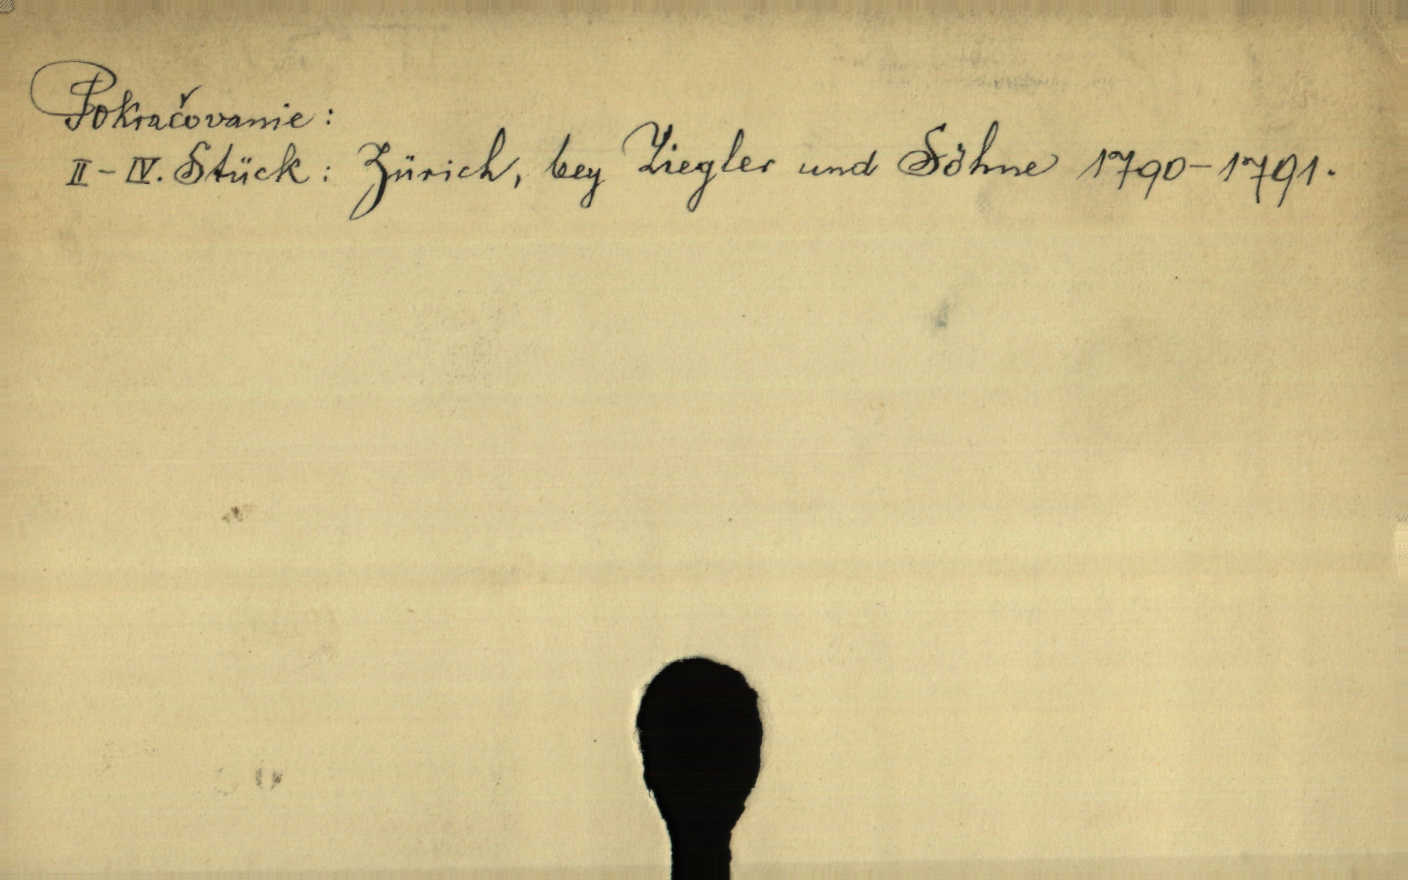 Pokračovanie:
II-IV. Stück: Zürich, bey Ziegler und Söhne 1790-1791.